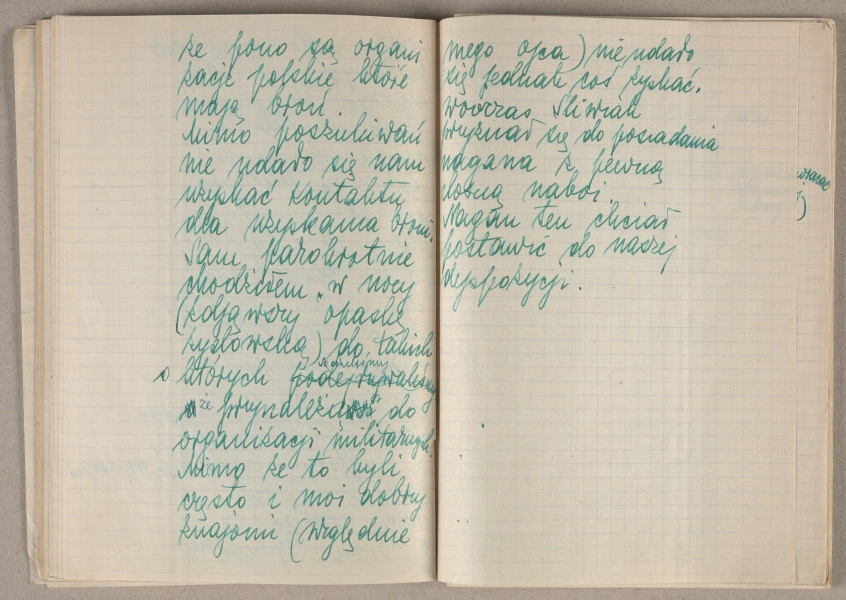 że pono są organi
zacje polskie które
mają broń.
Mimo poszukiwań
nie udało się nam
uzyskać kontaktu
dla uzyskania broni.
Sam parokrotnie
chodziłem w nocy
(zdjąwszy opaskę
żydowską) do takich
o których
że przynależą do
organizacji militarnych.
Mimo że to byli
często i moi dobrzy
znajomi (względnie
mego ojca) nie udało
się jednak coś zyskać.
Wówczas Śliwiak
wyznał się do posiadania
nagana z pewną
ilością naboi.
Nagan ten chciał
postawić do naszej
dyspozycji.